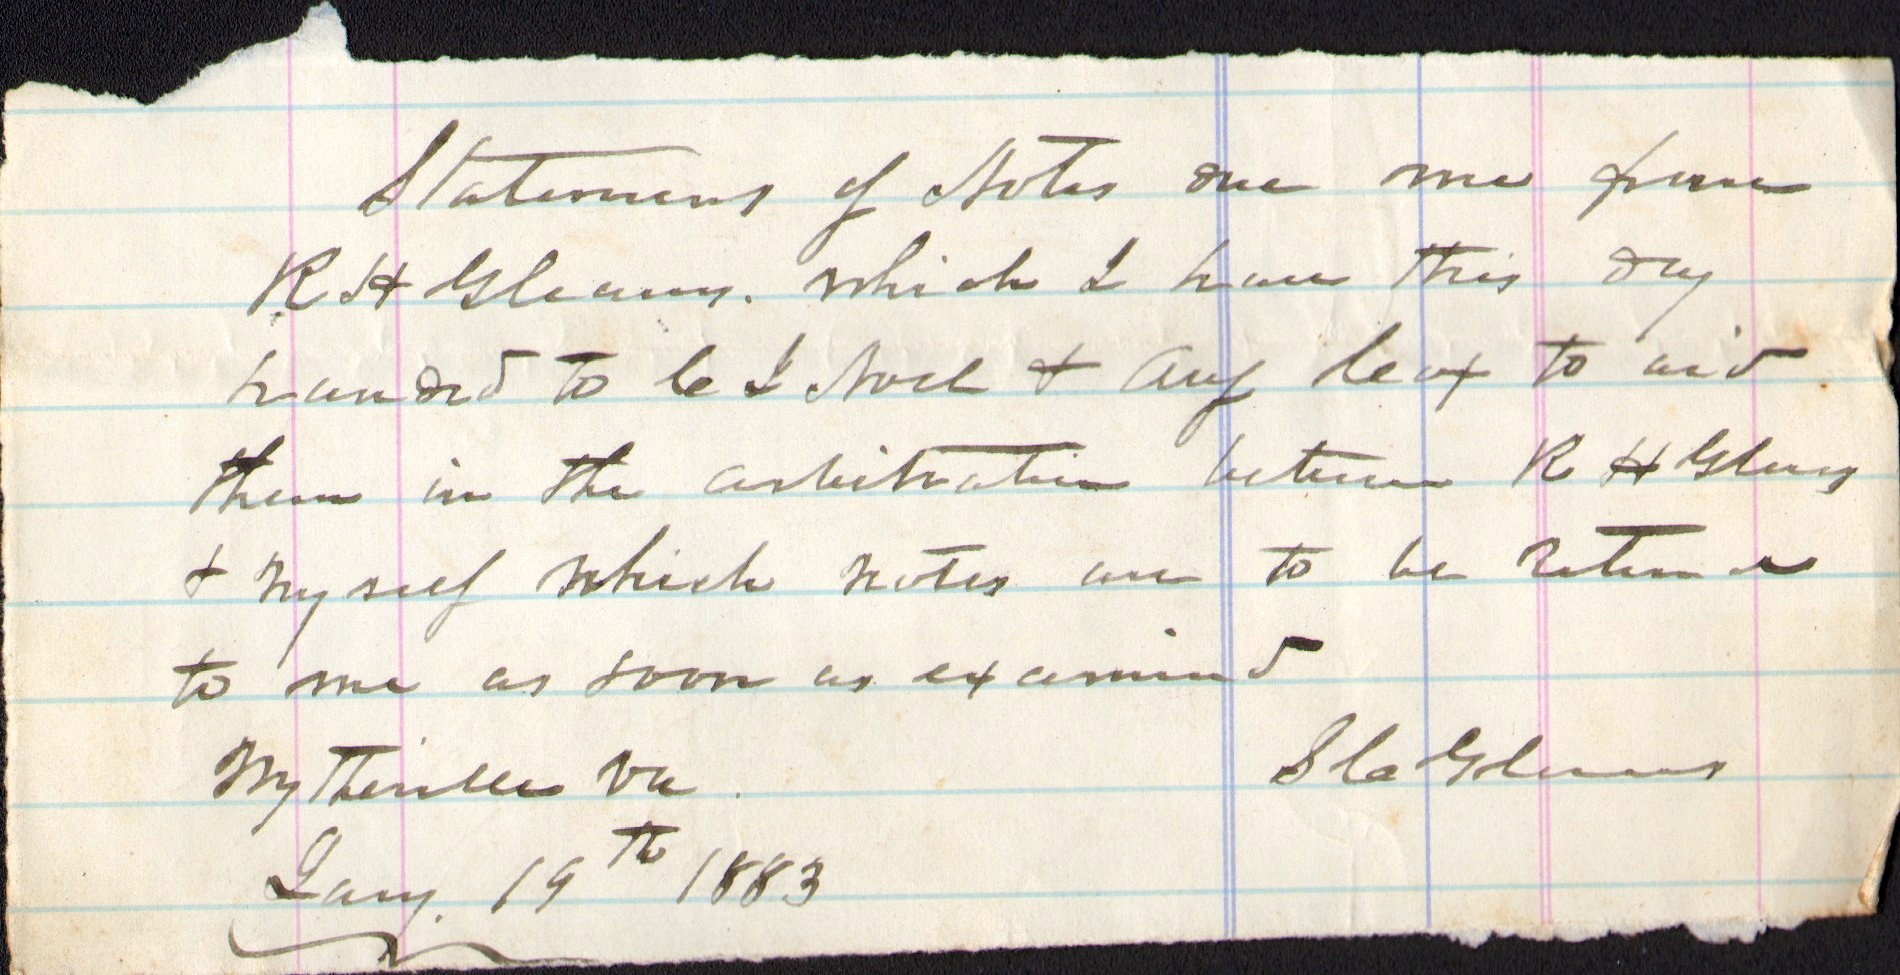 Statement of Notes due me from
R H Gleaves. which I have this day
handed to C I Noel & Aug Cox to aid
them in the arbitration between R H Gleaves
& Myself which notes are to be returned
to me as soon as examind
Wytheville Va. S C Gleaves
Jany. 19th 1883